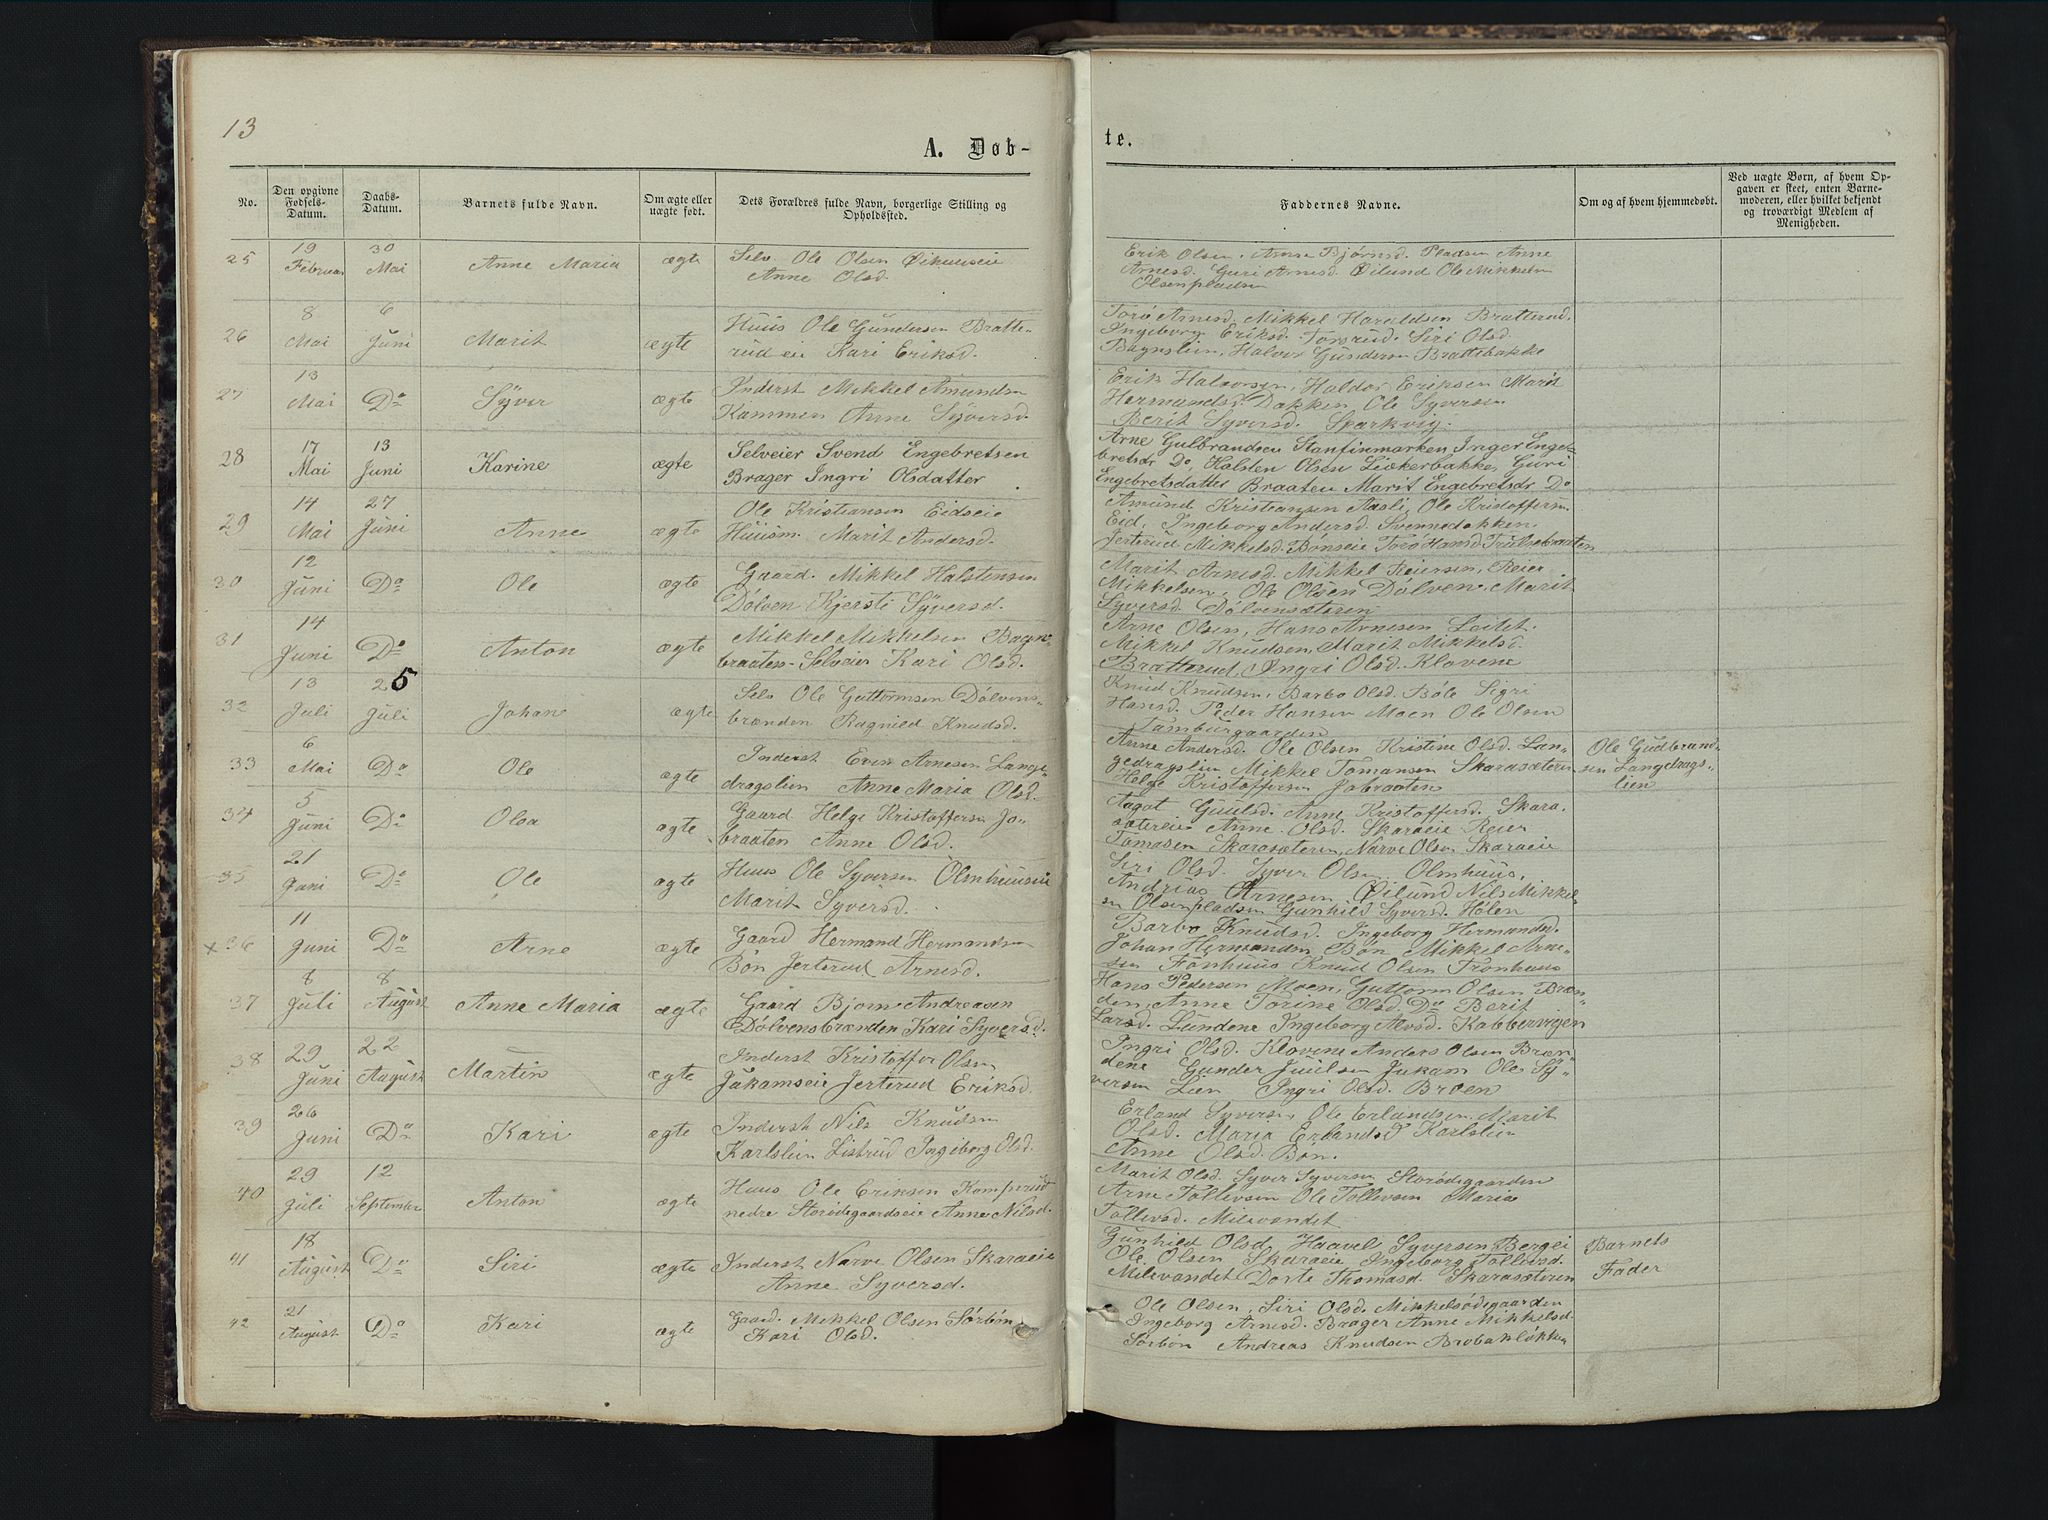 13
A. Døb-
te.
No.
Den opgivne Fødsels-Datum.
Daabs-Datum.
Barnets fulde Navn.
Om ægte eller uægte født.
Dets Forældres fulde Navn, borgerlige Stilling og Opholdssted.
Faddernes Navne.
Om og af hvem hjemmedøbt.
Ved uægte Børn, af hvem Opgaven er skeet, enten Barnemoderen, eller hvilket bekjendt og troværdigt Medlem af Menigheden.
25 19 Februar 30 Mai Anne Maria ægte Selv Ole Olsen
Anne Olsd.
Erik Olsen, Arne Bjørnsd. Pladsen Anne
Arnesd. Guri Arnesd. Øilund Ole Mikkelsn
Olsenpladsn
26 8 Mai 6 Juni Marit ægte Huus Ole Gundersen Bratte-
rud eie Kari Eriksd.
Torö Arnesd. Mikkel Haraldsen Bratterud,
Ingeborg Eriksd. Torsrud. Siri Olsd.
Bagnslien, Halvor Gundersn Brattebakke
27 13 Mai Do Syver ægte Inderst Mikkel Amundsn
Kammen Anne Syversd.
Erik Halvorsen, Haldor Eriksen Marit
Hermandsd. Dokken Ole Syversen
Berit Syversd. Sparkvig.
28 17 Mai 13 Juni Karine ægte Selveier Svend Engebretsen
Brager Ingri Olsdatter
Arne Gulbrandsen Stanfinmarken Inger Enge-
bretsdr Do, Halsten Olsen Leekerbakke, Guri
Engebretsdatter Braaten Marit Engebretsdr Do
29 14 Mai 27 Juni Anne ægte Ole Kristiansen Eidseie
Huusm. Marit Andersd.
Amund Kristiansen Aasli, Ole Kristoffersen
Eid, Ingeborg Andersd. Svennedokken.
Jerterud Mikkelsd. Bönseie Torö Hansd. Trulsebraaten
30 12 Juni Do Ole ægte Gaard. Mikkel Halstensen
Dölven Kjersti Syversd.
Marit Arnesd. Mikkel Reiersen, Reier
Mikkelsen, Ole Olsen Dölven. Marit
Syversd. Dölvensæteren
31 14 Juni Do Anton ægte Mikkel Mikkelsen Bagn-
braaten Selveier Kari Olsd.
Arne Olsen, Hans Arnesen Leitet.
Mikkel Knudsen, Marit Mikkelsd.
Bratterud, Ingri Olsd. Klovene
32 13 Juli 25 Juli Johan ægte Selv Ole Guttormsen Dölvens-
brænden Ragnild Knudsd.
Knud Knudsen, Barbo Olsd. Böle Sigri
Hansd. Peder Hansen Moen Ole Olsen
Tamburgaarden
33 6 Mai Do Ole ægte Inderst Erik Arnesen Lange-
dragslien Anne Maria Olsd.
Anne Andersd. Ole Olsen Kristine Olsd. Lan-
gedragslien Mikkel Tomansen Skarasæteren
Helge Kristoffersen Jobraaten
Ole Gudbrand-
sen Langdrags-
lien
34 5 Juni Do Olea ægte Gaard. Helge Kristoffersn Jo-
braaten Anne Olsd.
Aagot Guulsd. Anne Kristoffersd. Skara-
sætereie Anne Olsd. Skaraeie Reier
Tomasen Skarasæteren, Narve Olsen Skaraeie
35 21 Juni Do Ole ægte Huus Ole Syversen Olmhuuseie
Marit Syversd.
Siri Olsd. Syver Olsen Olmhuus,
Andrias Arnesen Øilund Nils Mikkel-
sn Olsenpladsen Gunhild Syversd. Hølen
x 36 11 Juni Do Arne ægte Gaard Hermand Hermandsn
Bön Jerterud Arnesd.
Barbo Knudsd. Ingeborg Hermandsd.
Johan Hermandsn Bön Mikkel Arne-
sen Fönhuus Knud Olsen Fronhaus
37 8 Juli 8 August Anne Maria ægte Gaard Bjorne Andreasen
Dölvensbrænden Kari Syversd.
Hans Pedersen Moen, Guttorm Olsen Bræn-
den, Anne Torine Olsd. Do Berit
Larsd. Lundene Ingeborg Alvsd. Kabbervigen
38 29 Juni 22 August Martin ægte Inderst Kristoffer Olsen
Jukamseie Jerterud Eriksd.
Ingri Olsd. Klovene Anders Olsen Bræn-
dene Gunder Juulsen Jukam Ole Sy-
versen Lien Ingri Olsd. Broen
39 26 Juni Do Kari ægte Inderst Nils Knudsn
Karlslien Listrud Ingeborg Olsd.
Erland Syversn, Ole Erlandsen Marit
Olsd. Maria Erlandsd. Karlslien
Anne Olsd. Bön.
40 29 Juli 12 September Anton ægte Huus Ole Eriksen Komperud
nedre Storødegaardseie Anne Nilsd.
Marit Olsd. Syver Syversn Storødegaarden
Arne Tollevsen Ole Tollevsen Maria
Tollevsd. Milevandet
41 18 August Do Siri ægte Inderst Narve Olsen Skaraeie
Anne Syversd.
Gunhild Olsd. Haavel Syversen Bergei
Ole Olsen Skaraeie Ingeborg Tollevsd.
Milevandet Dorte Thomasd. Skarasæteren
Barnets
Fader
42 21 August Do Kari ægte Gaard. Mikkel Olsen Sørbön,
Kari Olsd.
Ole Olsen, Siri Olsd. Mikkelsødegaarden
Ingeborg Arnesd. Brager Anne Mikkelsd.
Sørbön Andreas Knudsen Brobakløkken